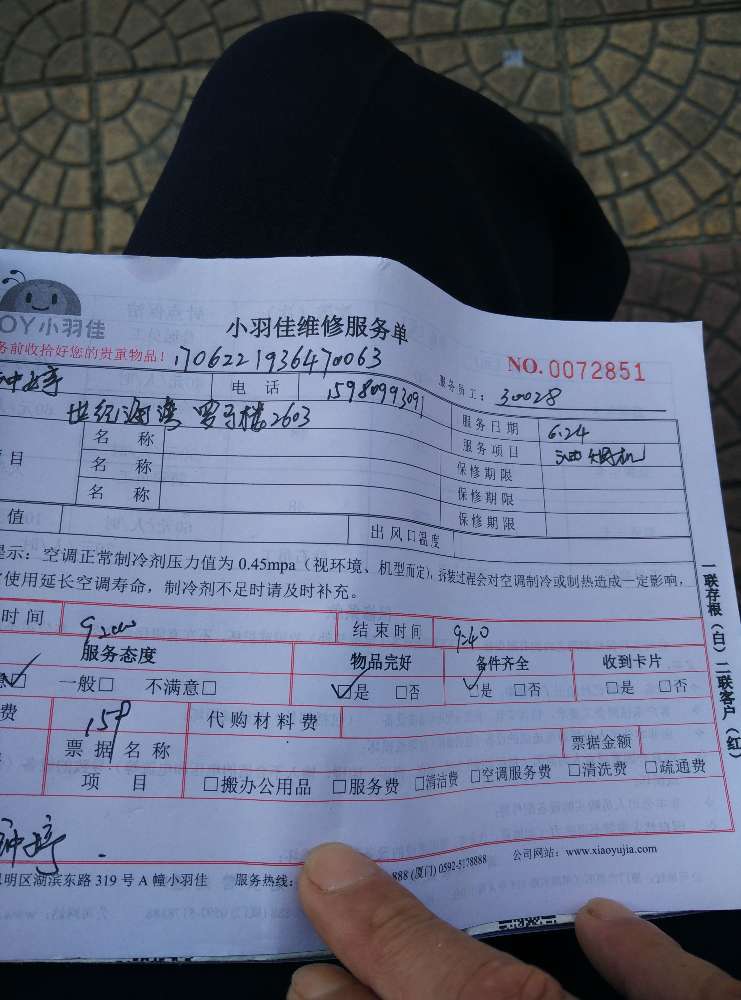 OY小羽佳
小羽佳维修服务单
务前收拾好您的贵重物品! 1706221936470063
NO. 0072851
电 话 15980993091 服务员工: 30028
世纪海湾 2603
服务日期 6.24
名 称 服务项目 油烟机
目 名 称 保修期限
名 称 保修期限
保修期限
值 出风口温度
提示: 空调正常制冷剂压力值为 0.45mpa (视环境、机型而定), 拆装过程会对空调制冷或制热造成一定影响,
使用延长空调寿命, 制冷剂不足时请及时补充。
时间 结束时间 9:40
服务态度 物品完好 备件齐全 收到卡片
意☑ 一般□ 不满意□ ☑是 □否 ☑是 □否 □是 □否
费 代购材料费
票 据 名 称 票据金额
项 目 □搬办公用品 □服务费 □清洁费 □空调服务费 □清洗费 □疏通费
思明区湖滨东路 319 号 A 幢小羽佳 服务热线: 888 (厦门) 0592-5178888 公司网站: www.xiaoyujia.com
一联存根(白) 二联客户(红)